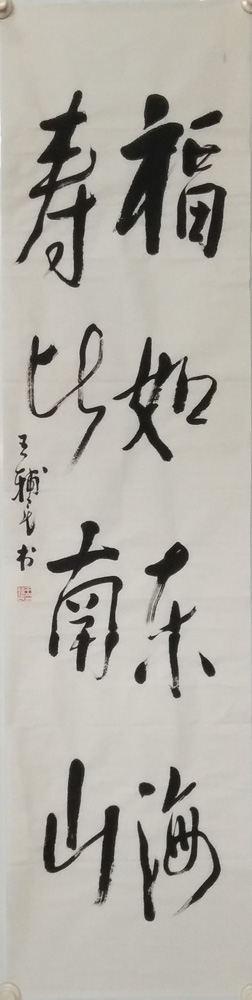 福如东海
寿比南山
王辅民书